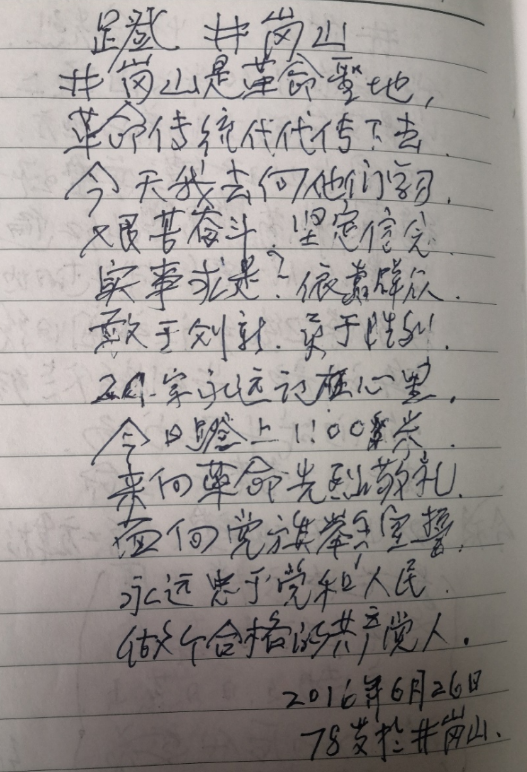 蹬井岗山
井岗山是革命圣地,
革命传统代代传下去.
今天我去向他们学习.
艰苦奋斗.坚定信念.
实事求是?依靠群众.
敢于创新.勇于牺牲.
24字永远记在心里.
今日蹬上1100米
来向革命先烈敬礼.
面向党旗举手宣誓.
永远忠于党和人民.
做个合格的共产党人.
2016年6月26日
78岁于井岗山.